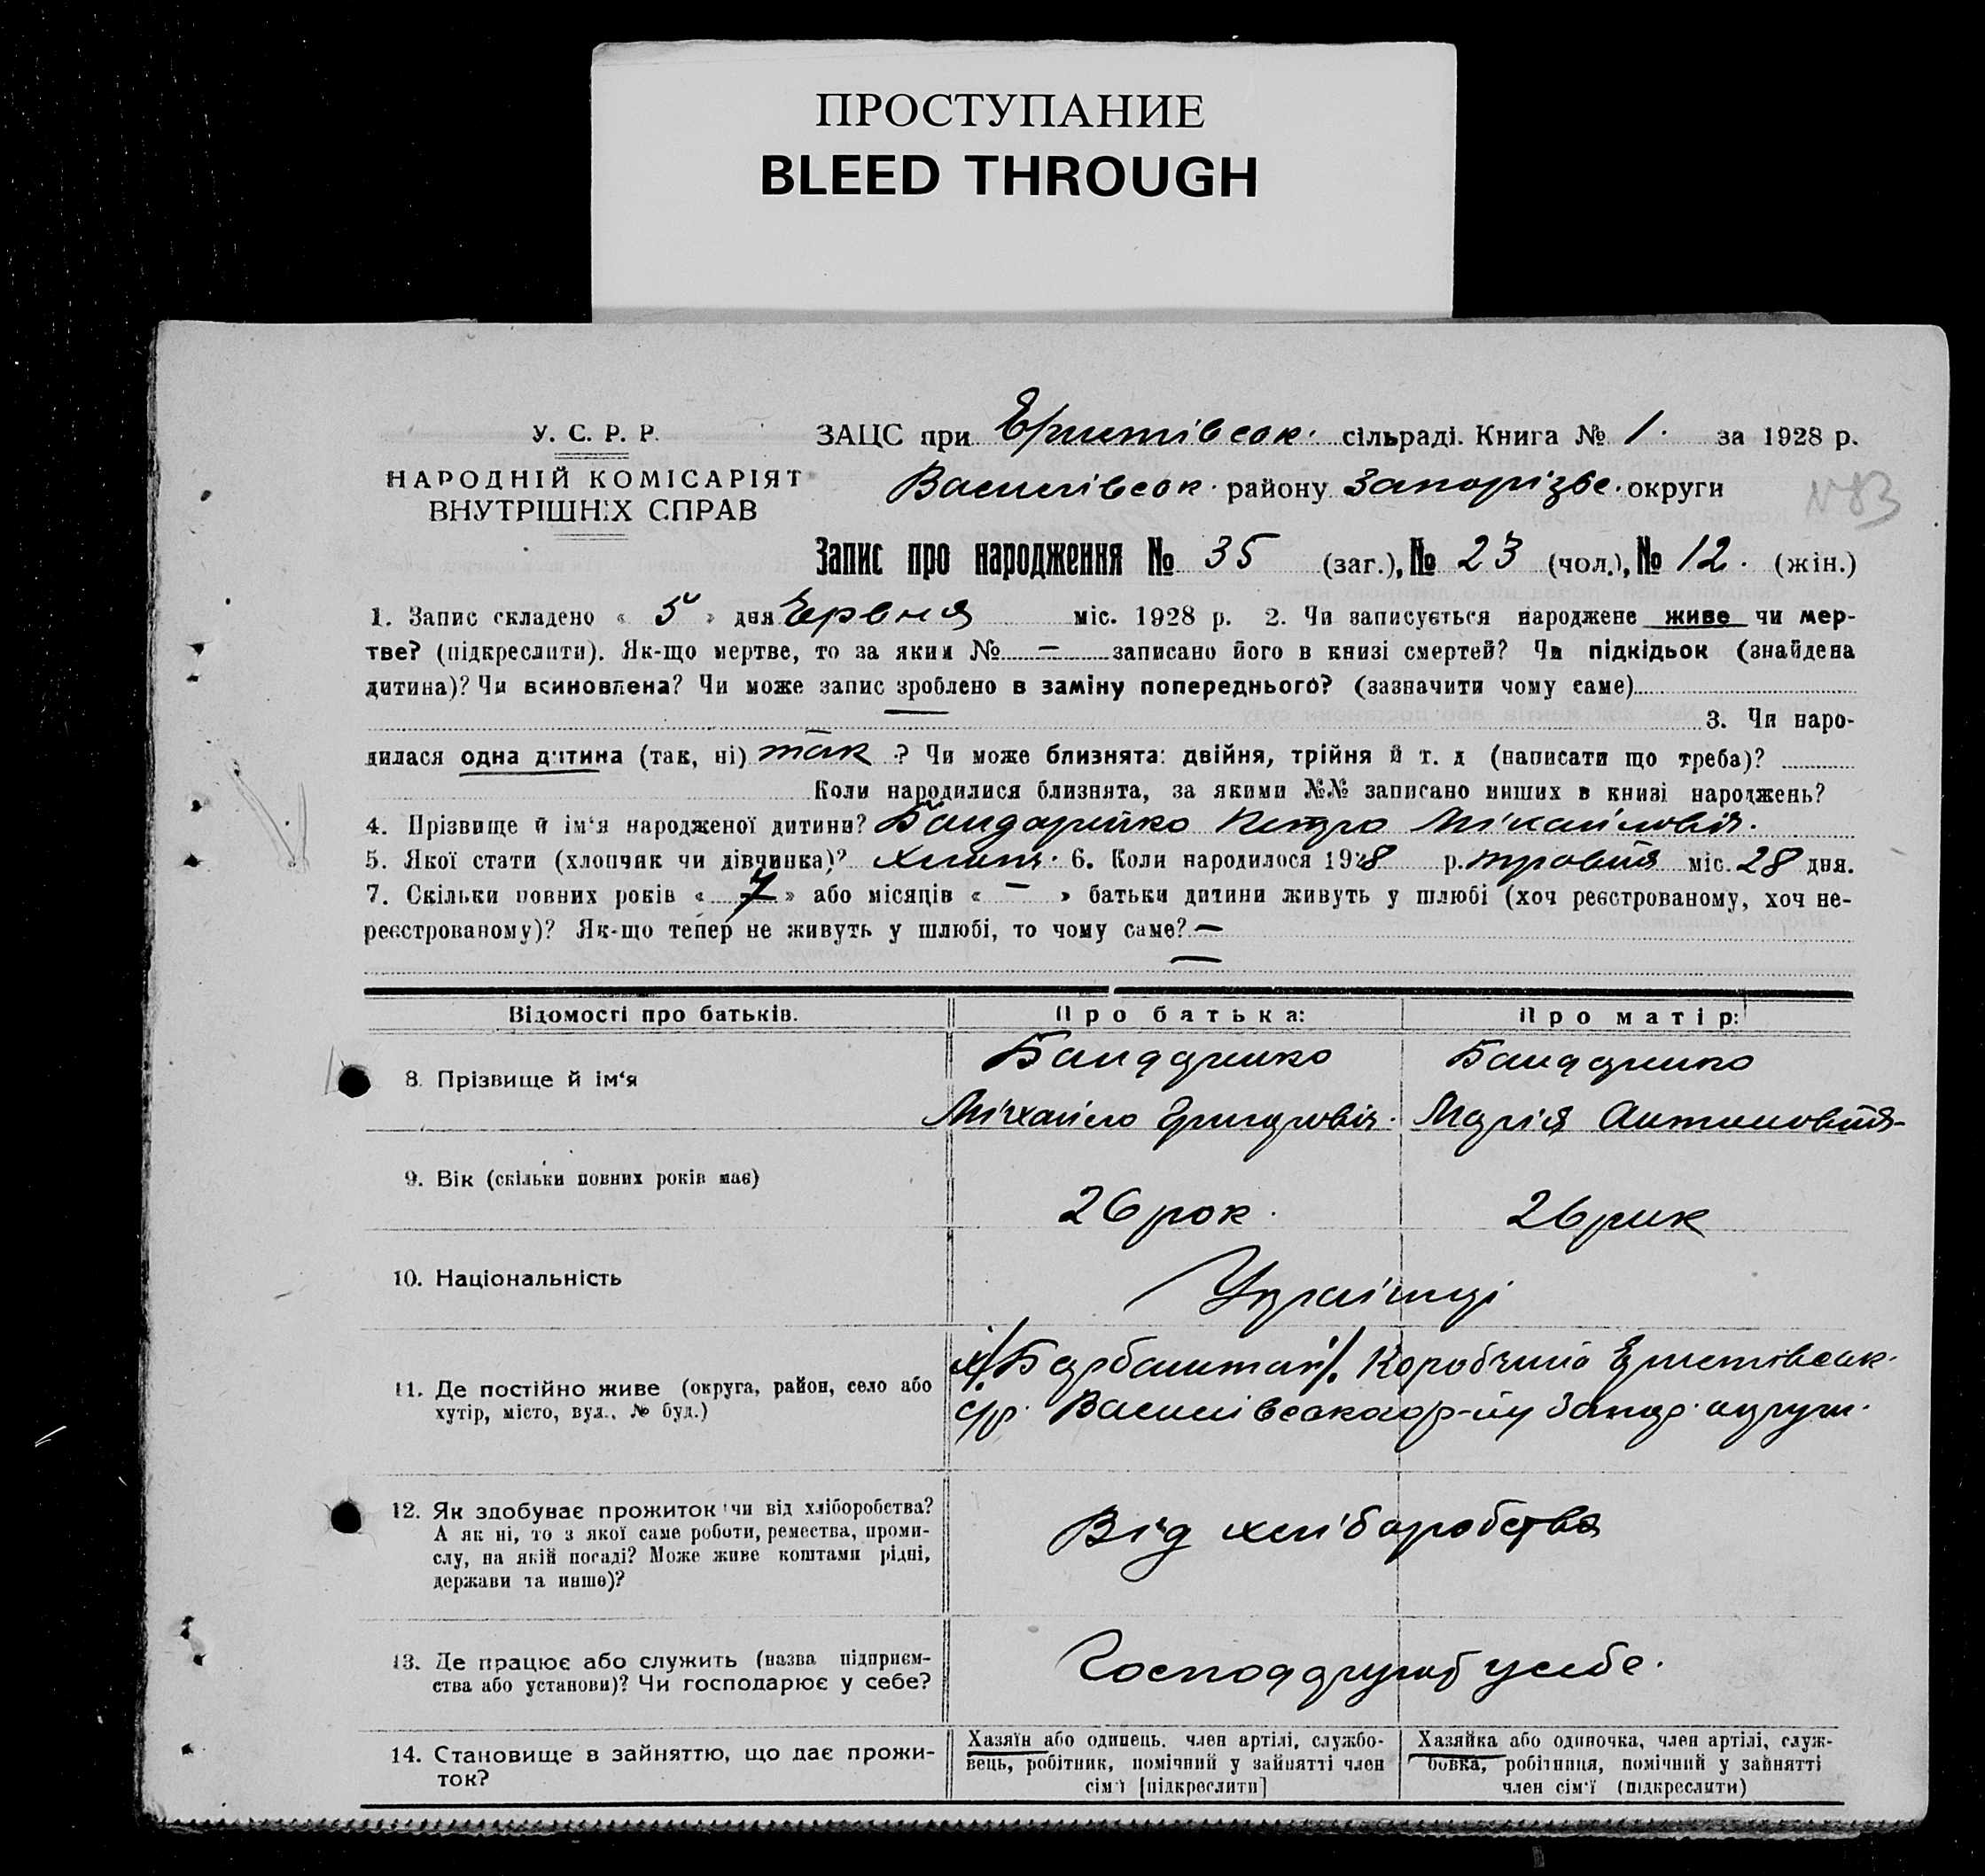 ПРОСТУПАНИЕ
BLEED THROUGH
У. С. Р. Р.
НАРОДНІЙ КОМІСАРІЯТ
ВНУТРІШНІХ СПРАВ
ЗАЦС при Еристівськ. сільраді. Книга № 1. за 1928 р.
Василівськ. району Запорізьк. округи
N 83
Запис про народження № 35 (заг.), № 23 (чол.), № 12. (жін.)
1. Запис складено « 5 » дня Червня міс. 1928 р. 2. Чи записується народжене живе чи мер-
тве? (підкреслити). Як-що мертве, то за яким № — записано його в книзі смертей? Чи підкідьок (знайдена
дитина)? Чи всиновлена? Чи може запис зроблено в заміну попереднього? (зазначити чому саме)
3. Чи наро-
дилася одна дитина (так, ні) так ? Чи може близнята: двійня, трійня й т. д (написати що треба)?
Коли народилися близнята, за якими №№ записано инших в книзі народжень?
4. Прізвище й ім‘я народженої дитини? Бандаренко Петро Міхайловіч.
5. Якої стати (хлопчик чи дівчинка)? хлопч. 6. Коли народилося 1928 р. травня міс. 28 дня.
7. Скільки повних років « 7 » або місяців « — » батьки дитини живуть у шлюбі (хоч реєстрованому, хоч не-
реєстрованому)? Як-що тепер не живуть у шлюбі, то чому саме? —
—
Відомості про батьків. Про батька: Про матір:
8. Прізвище й ім‘я
Бандаренко
Міхайло Григоровіч.
Бандаренко
Марія Антоновня
9. Вік (скільки повних років має)
26 рок. 26 рик
10. Національність
Українці
11. Де постійно живе (округа, район, село або
хутір, місто, вул., № буд.)
х/ Барбаштай/. Коробчино Еристівськ.
с/р. Василівского р-ну Запор. округи.
12. Як здобуває прожиток чи від хліборобства?
А як ні, то з якої саме роботи, ремества, проми-
слу, на якій посаді? Може живе коштами рідні,
держави та инше)?
Від хліборобства
13. Де працює або служить (назва підприєм-
ства або установи)? Чи господарює у себе?
Господарують у себе.
14. Становище в зайняттю, що дає прожи-
ток?
Хазяїн або одинець. член артілі, службо-
вець, робітник, помічний у зайнятті член
сім‘ї [підкреслити]
Хазяйка або одиночка, член артілі, служ-
бовка, робітниця, помічний у зайнятті
член сім‘ї (підкреслити)